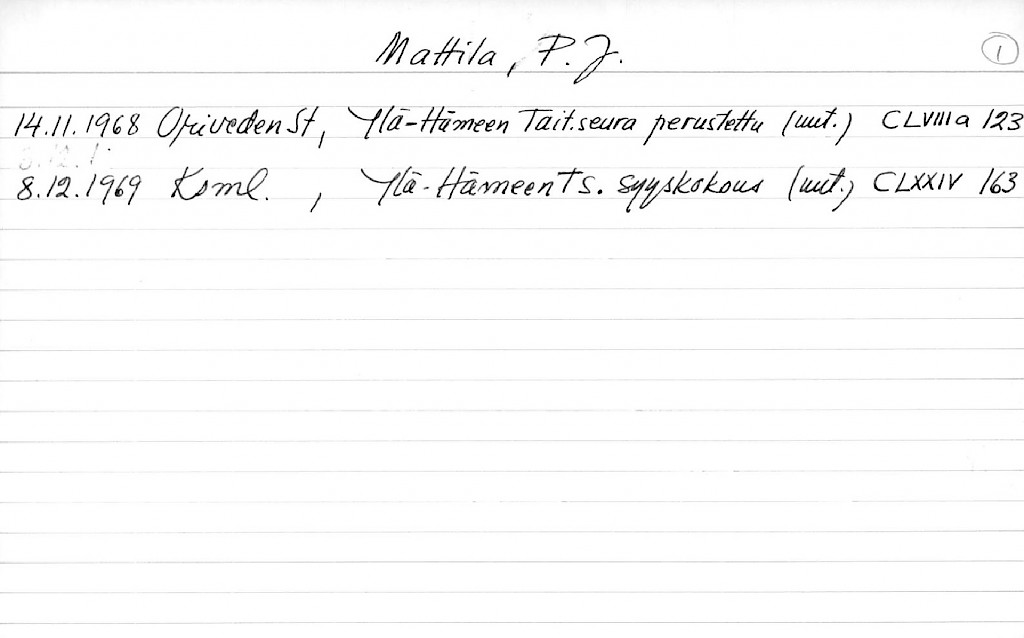 Mattila, P. J.
1
14.11.1968 Oriveden St, Ylä-Hämeen Tait.seura perustettu (uut.) CLVIIIa 123
8.12.1969 Ksml. , Ylä-Hämeen TS. syyskokous (uut.) CLXXIV 163